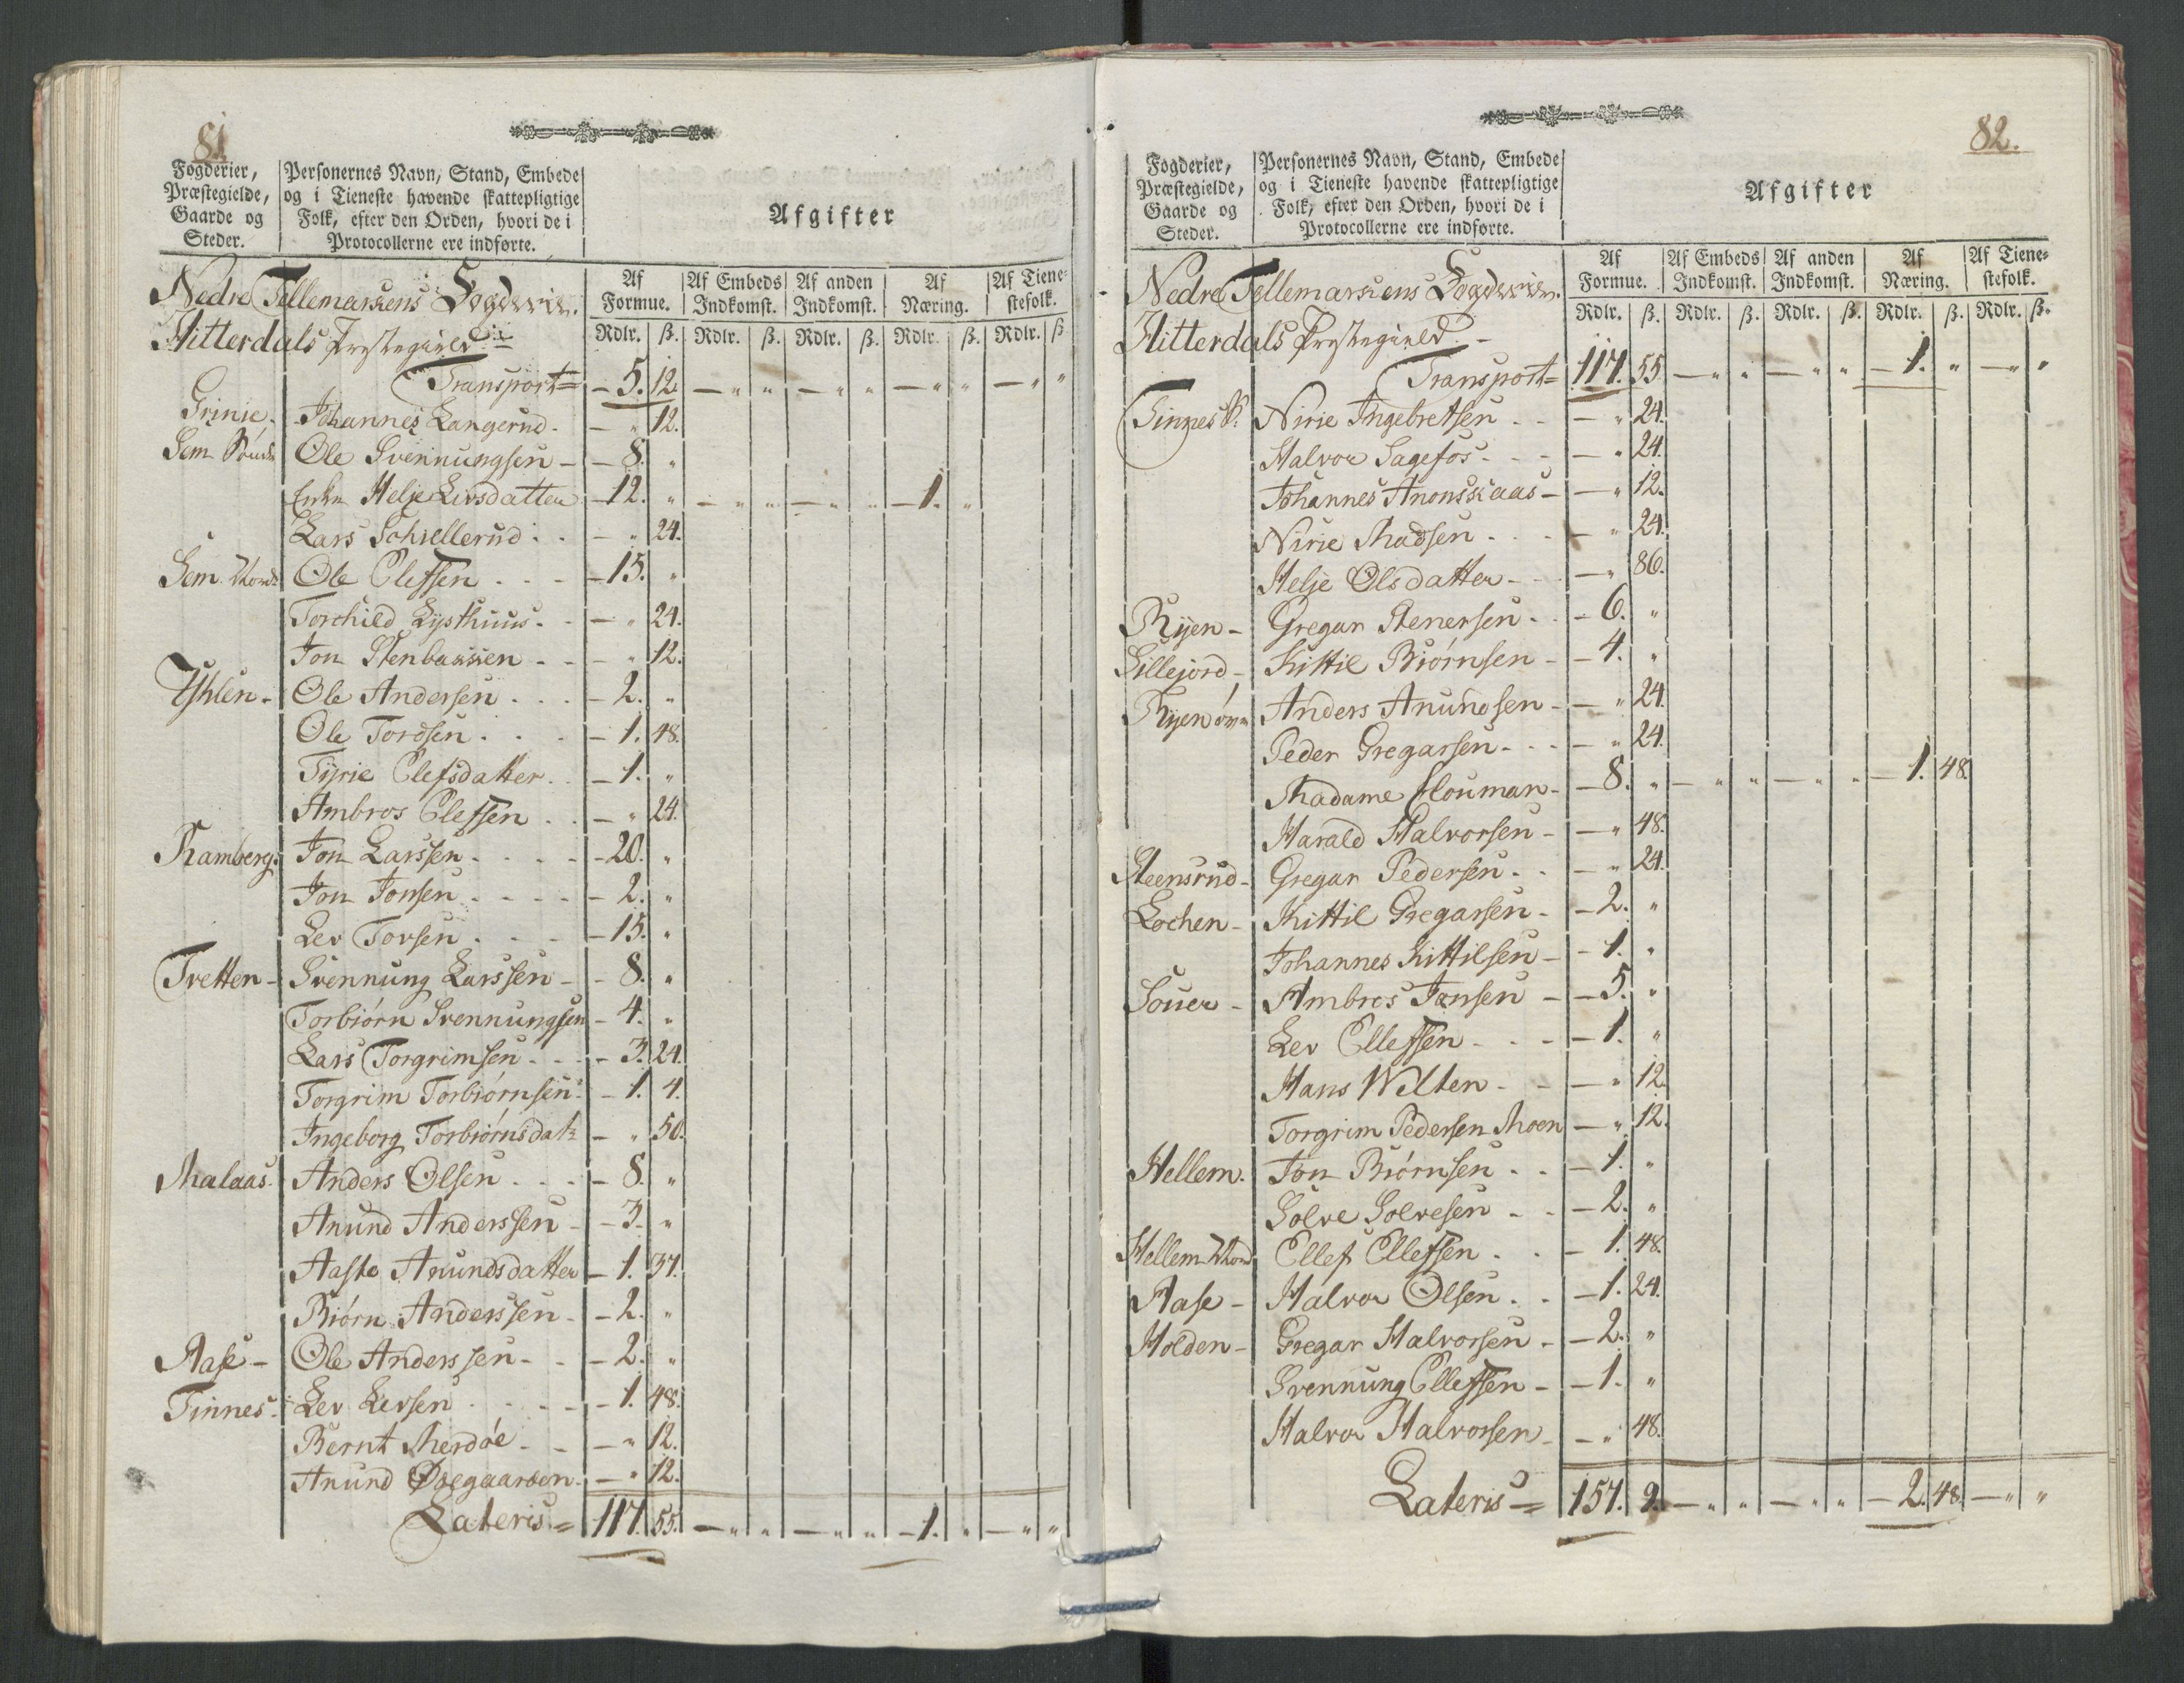 81.
Fogderier, Præstegielde, Gaarde og Steder.
Personernes Navn, Stand, Embede og i Tieneste havende skattepligtige Folk, efter den Orden, hvori de i Protocollerne ere indførte.
Afgifter
Af Formue. Af Embeds Indkomst. Af anden Indkomst. Af Næring. Af Tienestefolk.
Rdlr. ß. Rdlr. ß. Rdlr. ß. Rdlr. ß. Rdlr. ß.
Nedre Tellemarkens Fogderie.
Hitterdals Prestegield
Transport = - 5. 12. - " " - " " - " " - " "
Grinie. Johannes Langerud. - " 12.
Sem Ole Svennungsen - - 8. "
Enke Helje Livsdatter - 12. " - " " - " " - 1. "
Lars Schiellerud . . - " 24.
Sem Ole Olefsen . . - - 15. "
Torchild Lysthuus. - - " 24.
Jon Stenbakken - - - " 12.
Yhlen - Ole Andersen . . . - 2. "
Ole Tordsen . . - - 1. 48.
Tyrie Olefsdatter . . - 1. "
Ambros Olefsen . . - " 24.
Ramberg. Jon Larssen . . . - - 20. "
Jon Jonsen . - - - - 2. "
Lev Torsen . - - - 15. "
Tvetten - Svennung Larssen - - 8. "
Torbiørn Svennungsen - 4. "
Lars Torgrimsen . - - - 3. 24.
Torgrim Torbiørnsen - 1. 4.
Ingeborg Torbiørnsdat: - " 50.
Malaas. Anders Olsen . . - - 8. "
Anund Anderssen - - 3. "
Aaste Anundsdatter - 1. 37.
Biørn Anderssen - - 2. "
Aase - Ole Anderssen - . - 2. "
Tinnes. Lev Levsen . - - - 1. 48.
Bernt Merdøe - - - " 12.
Anund Ødegaarden - - " 12.
Lateris = 117. 55. - " " - " " - 1. " - " "
82.
Fogderier, Præstegielde, Gaarde og Steder.
Personernes Navn, Stand, Embede og i Tieneste havende skattepligtige Folk, efter den Orden, hvori de i Protocollerne ere indførte.
Afgifter
Af Formue. Af Embeds Indkomst. Af anden Indkomst. Af Næring. Af Tienestefolk.
Rdlr. ß. Rdlr. ß. Rdlr. ß. Rdlr. ß. Rdlr. ß.
Nedre Tellemarkens Fogderie.
Hitterdals Prestegield. -
Transport = 117. 55 - " " - " " - 1. " - " "
Tinnes Nirie Ingebretsen . - - " 24.
Halvor Sagefos . - - - " 24.
Johannes Anonskaas - - " 12.
Nirie Madsen . . . - " 24.
Helje Olsdatter - - - " 86.
Ryen - Gregar Stenersen . . - 6. "
Lillejord - Kittil Biørnsen - - 4. "
Ryen Anders Anundsen - - " 24.
Peder Gregarsen . . . - " 24.
Madame Houman - - 8. " - " " - " " - 1. 48.
Harald Halvorsen - - " 48.
Steensrud - Gregar Pedersen . . - " 24.
Lochen - Kittil Gregarsen - - 2. "
Johannes Kittilsen - - 1. "
Souer - Ambros Jansen - - 5. "
Lev Ellefsen . . - - 1. "
Hans Welten . - - " 12.
Torgrim Pedersen Moen - " 12.
Hellem. Jon Biørnsen . . - 1. "
Solve Solvesen . . - 2. "
Hellem Ellef Ellefsen . . - 1. 48.
Aase - Halvor Olsen . . - 1. 24.
Holden - Gregar Halvorsen - - 2. "
Svennung Ellefsen - - 1. "
Halvor Halvorsen - - " 48.
Lateris = 157. 9. - " " - " " - 2. 48. - " "